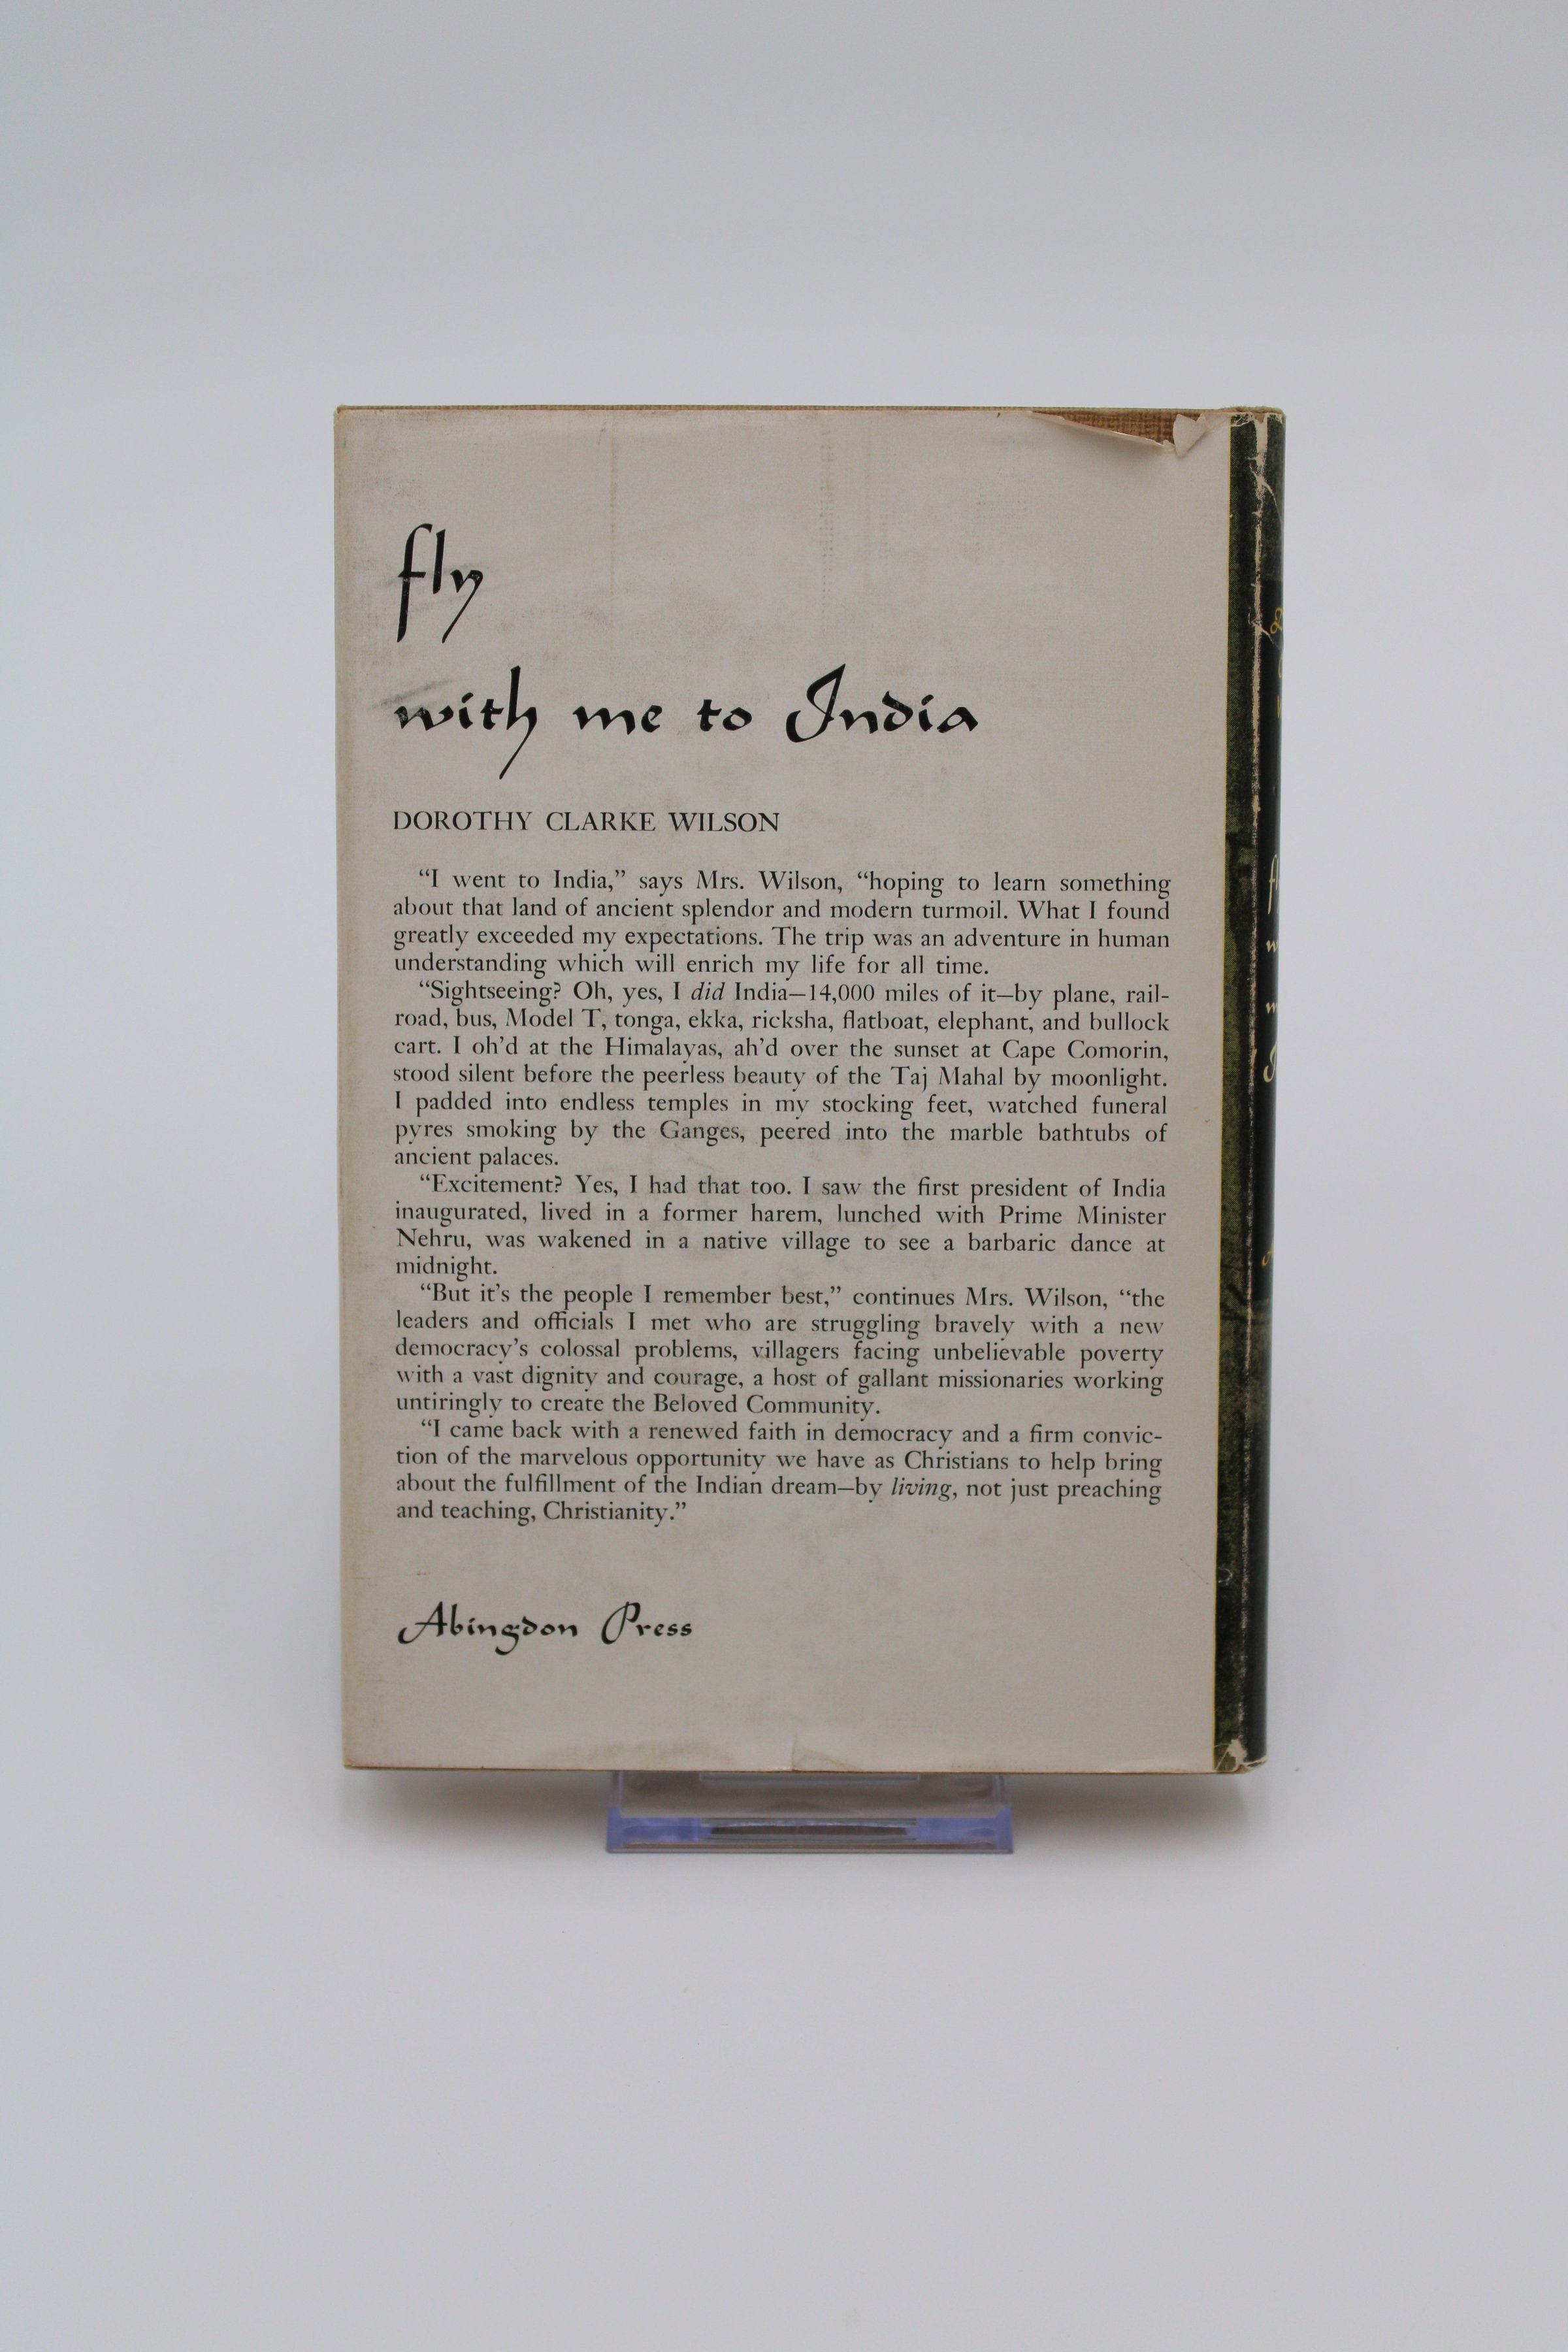 fly
with me to India
DOROTHY CLARKE WILSON
“I went to India,” says Mrs. Wilson, “hoping to learn something
about that land of ancient splendor and modern turmoil. What I found
greatly exceeded my expectations. The trip was an adventure in human
understanding which will enrich my life for all time.
“Sightseeing? Oh, yes, I did India—14,000 miles of it—by plane, rail-
road, bus, Model T, tonga, ekka, ricksha, flatboat, elephant, and bullock
cart. I oh’d at the Himalayas, ah’d over the sunset at Cape Comorin,
stood silent before the peerless beauty of the Taj Mahal by moonlight.
I padded into endless temples in my stocking feet, watched funeral
pyres smoking by the Ganges, peered into the marble bathtubs of
ancient palaces.
“Excitement? Yes, I had that too. I saw the first president of India
inaugurated, lived in a former harem, lunched with Prime Minister
Nehru, was wakened in a native village to see a barbaric dance at
midnight.
“But it’s the people I remember best,” continues Mrs. Wilson, “the
leaders and officials I met who are struggling bravely with a new
democracy’s colossal problems, villagers facing unbelievable poverty
with a vast dignity and courage, a host of gallant missionaries working
untiringly to create the Beloved Community.
“I came back with a renewed faith in democracy and a firm convic-
tion of the marvelous opportunity we have as Christians to help bring
about the fulfillment of the Indian dream—by living, not just preaching
and teaching, Christianity.”
Abingdon Press